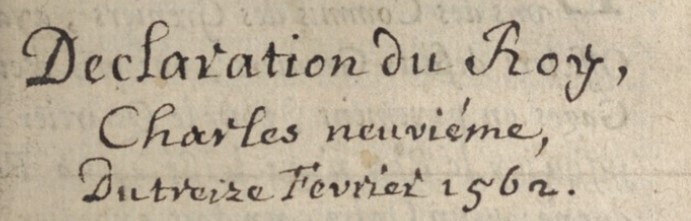 Declaration du Roy,
Charles neuviéme,
Du treize Fevrier 1562.